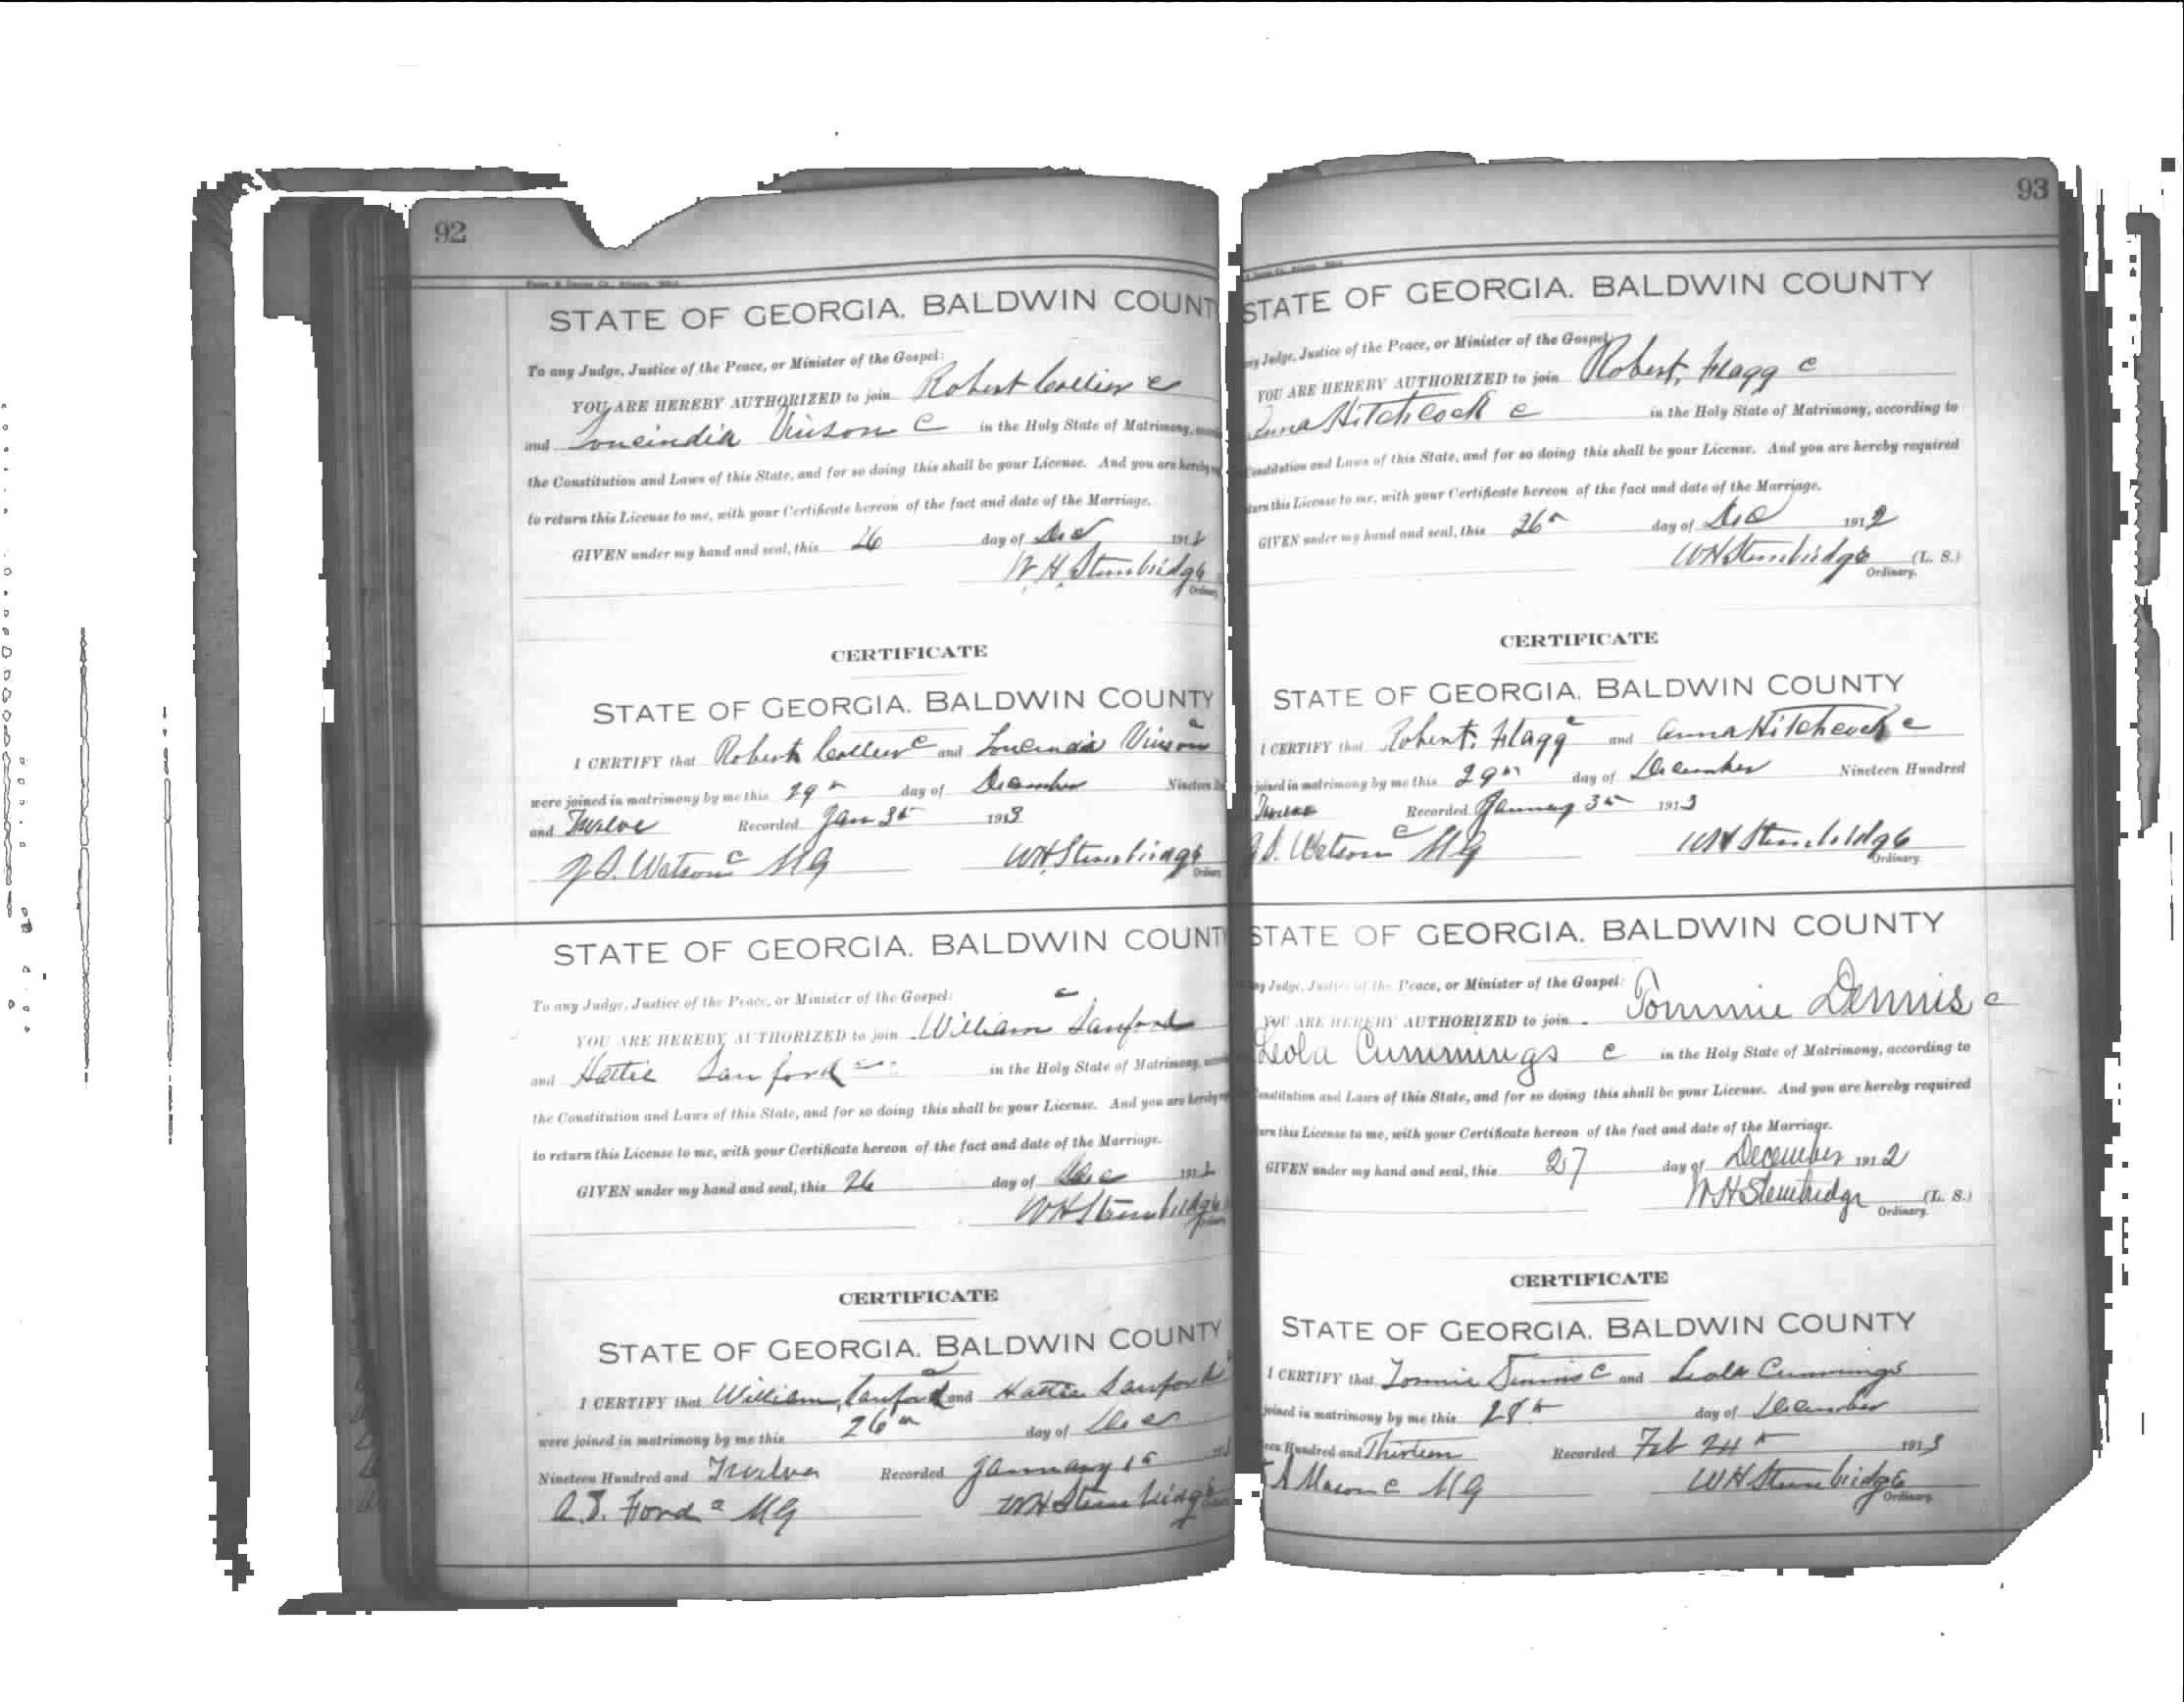 92
STATE OF GEORGIA. BALDWIN COUNT
To any Judge, Justice of the Peace, or Minister of the Gospel:
YOU ARE HEREBY AUTHORIZED to join Robert Collier c
and Loueindia Vinson C in the Holy State of Matrimony,
the Constitution and Laws of this State, and for so doing this shall be your License. And you are hereby
to return this License to me, with your Certificate hereon of the fact and date of the Marriage.
GIVEN under my hand and seal, this 26 day of Dec 1912
W.H. Stembridge
Ordinary
CERTIFICATE
STATE OF GEORGIA. BALDWIN COUNTY
I CERTIFY that Robert Collier c and Loueindia Vinson c
were joined in matrimony by me this 29th day of December Nineteen
and Twelve Recorded Jan 3rd 1913
Watson c MG WH Stembridge
Ordinary
STATE OF GEORGIA. BALDWIN COUNT
To any Judge, Justice of the Peace, or Minister of the Gospel:
YOU ARE HEREBY AUTHORIZED to join William Sanford c
and Hattie Sanford c in the Holy State of Matrimony,
the Constitution and Laws of this State, and for so doing this shall be your License. And you are hereby
to return this License to me, with your Certificate hereon of the fact and date of the Marriage.
GIVEN under my hand and seal, this 26 day of Dec 1912
WH Stembridge
CERTIFICATE
STATE OF GEORGIA. BALDWIN COUNTY
I CERTIFY that William Sanford c and Hattie Sanford
were joined in matrimony by me this 26th day of Dec
Nineteen Hundred and Twelve Recorded January 1st
Ford c MG WH Stembridge
93
STATE OF GEORGIA. BALDWIN COUNTY
Judge, Justice of the Peace, or Minister of the Gospel:
YOU ARE HEREBY AUTHORIZED to join Robert, Flagg c
Anna Hitchcock c in the Holy State of Matrimony, according to
Constitution and Laws of this State, and for so doing this shall be your License. And you are hereby required
turn this License to me, with your Certificate hereon of the fact and date of the Marriage.
GIVEN under my hand and seal, this 26th day of Dec 1912
WH Stembridge (L. S.)
Ordinary.
CERTIFICATE
STATE OF GEORGIA. BALDWIN COUNTY
I CERTIFY that Robert. Flagg c and Anna Hitchcock c
joined in matrimony by me this 29th day of December Nineteen Hundred
Twelve Recorded January 3rd 1913
Watson c MG WH Stembridge
Ordinary.
STATE OF GEORGIA. BALDWIN COUNTY
Judge, Justice of the Peace, or Minister of the Gospel:
YOU ARE HEREBY AUTHORIZED to join Tommie Dennis c
Leola Cummings c in the Holy State of Matrimony, according to
Constitution and Laws of this State, and for so doing this shall be your License. And you are hereby required
turn this License to me, with your Certificate hereon of the fact and date of the Marriage.
GIVEN under my hand and seal, this 27 day of December 1912
W H Stembridge (L. S.)
Ordinary.
CERTIFICATE
STATE OF GEORGIA. BALDWIN COUNTY
I CERTIFY that Tommie Dennis c and Leola Cummings
joined in matrimony by me this 28th day of December
een Hundred and Thirteen Recorded Feb 24th 1913
A Mason c MG WH Stembridge
Ordinary.